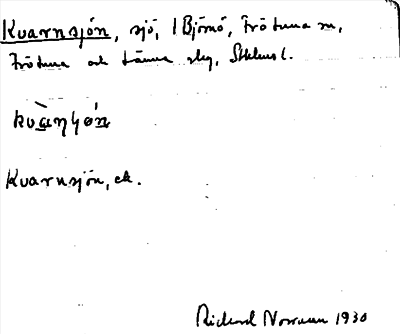 Kvarnsjön, sjö, i Björnö, Frötuna sn,
Frötuna och Länna skg, Sthlms l.
kvàn̨ɧǿn
Kvarnsjön, ek.
Rickard Norman 1930